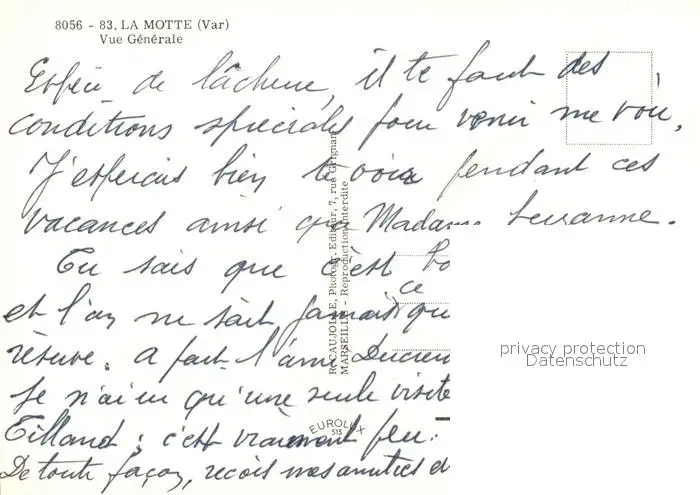 8056 - 83. LA MOTTE (Var)
Vue Générale
Espèce de lâcheur, il te faut des
conditions spéciales pour venir me voir,
J'espérais bien te voir pendant ces
vacances ainsi que Madame
Tu sais que c'est
ce
et l'on ne sait jamais
réserve. A part l'ami Lucien
Je n'ai eu qu'une seule visite
c'est vraiment peu.
De toute façon, reçois mes amitiés
R. CAUJOLLE, Photogr. Editeur, 7, rue Grignan
MARSEILLE - Reproduction Interdite
EUROLUX
513
privacy protection
Datenschutz